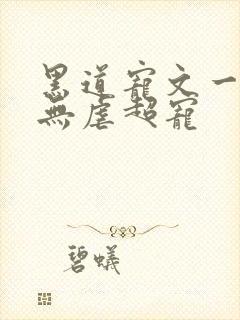 黑道寵文一
無虐超寵
碧蟻